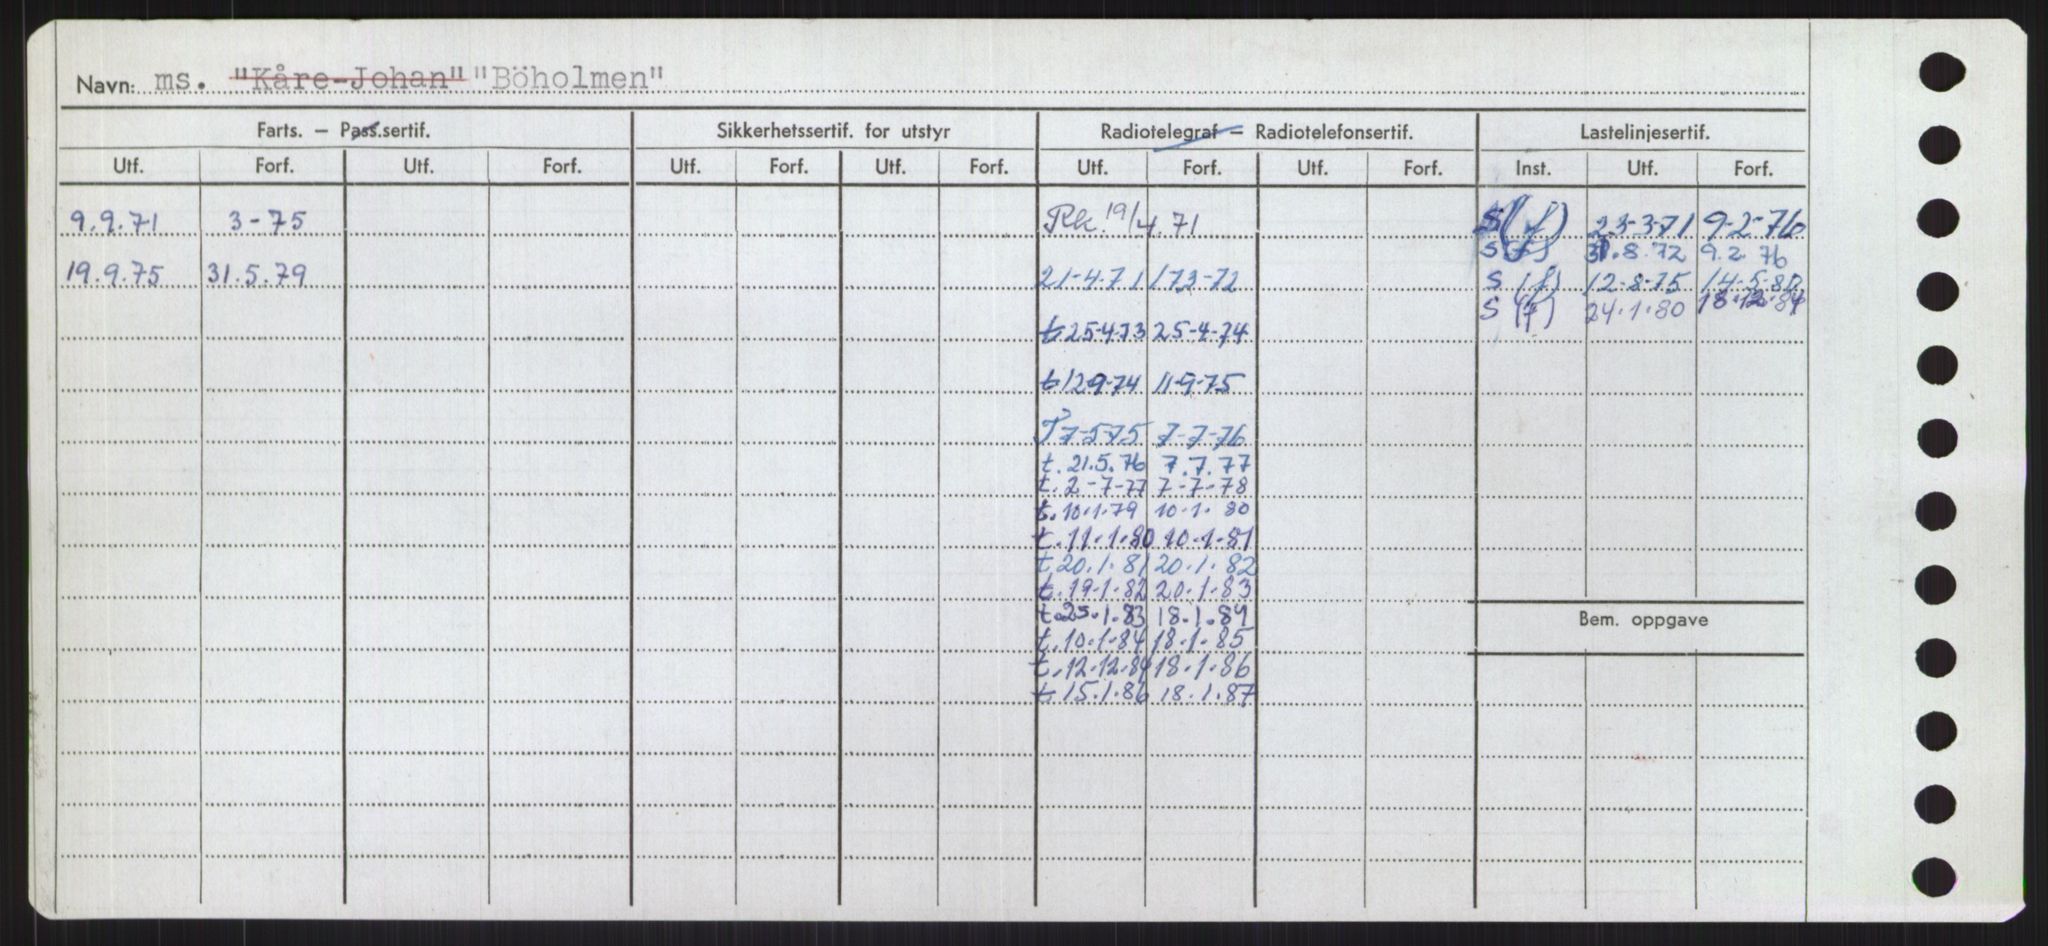 Navn: ms. "Kåre-Johan" "Böholmen"
Farts. – Pass.sertif. Sikkerhetssertif. for utstyr Radiotelegraf – Radiotelefonsertif. Lastelinjesertif.
Utf. Forf. Utf. Forf. Utf. Forf. Utf. Forf. Utf. Forf. Utf. Forf. Inst. Utf. Forf.
9.9.71 3-75 Rk. 19/4.71 S (f) 23-3-71 9-2-76
S (f) 31.8.72 9.2.76
19.9.75 31.5.79 21-4-71 173-72 S (f) 12-8-75 14-5-80
S (f) 24.1.80 18.12.84
t 25-4-73 25-4-74
t 12-9-74 11-9-75
T 7-5-75 7-7-76
t. 21.5.76 7.7.77
t. 2-7-77 7-7-78
t. 10.1.79 10.1.80
t. 11.1.80 10.1.81
t 20.1.81 20.1.82
t. 19.1.82 20.1.83
t. 25.1.83 18.1.84
Bem. oppgave
t. 10.1.84 18.1.85
t. 12.12.84 18.1.86
t 15.1.86 18.1.87